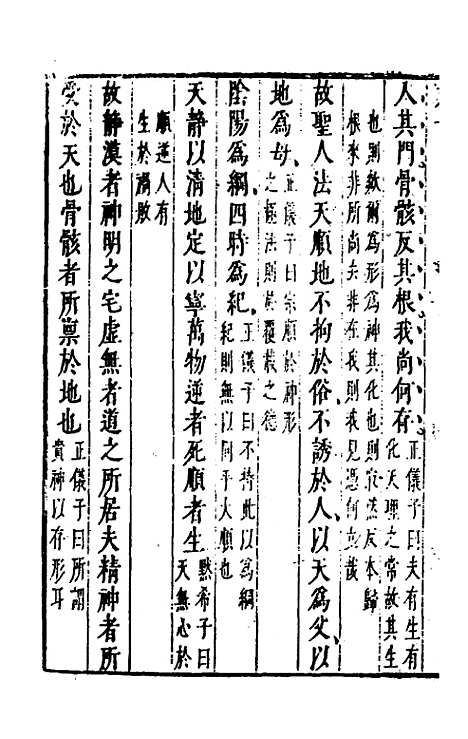 入其門骨骸反其根我尚何存正儀子曰夫有生有
化天理之常故其生
也則歘爾爲形爲神其化也則寂然反本歸
根來非所尚去非在我則我見憑何立哉
故聖人法天順地不拘於俗不誘於人以天爲父以
地爲母正儀子曰宗順於神形
之極法則於覆載之德
陰陽爲綱四時爲紀正儀子曰不恃此以爲綱
紀則無以同乎大順也
天静以清地定以寧萬物逆者死順者生黙希子曰
天無心於
順逆人有
生於滴散
故静漠者神明之宅虚無者道之所居夫精神者所
受於天也骨骸者所禀於地也正儀子曰所謂
貴神以存形耳